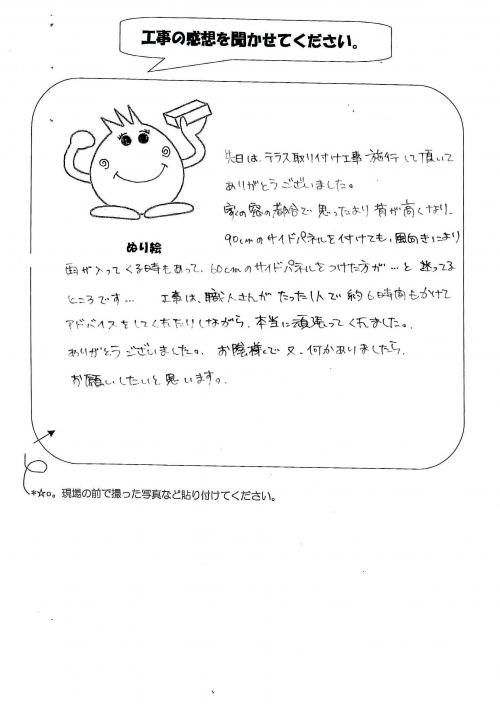 工事の感想を聞かせてください。
先日は、テラス取り付け工事 施行して頂いて
ありがとうございました。
家の窓の都合で思ったより背が高くなり、
90cmのサイドパネルを付けても、風向きにより
ぬり絵
雨が入ってくる時もあって、60cmのサイドパネルをつけた方が…と迷ってる
ところです… 工事は、職人さんがたった1人で約6時間もかけて
アドバイスをしてくれたりしながら、本当に頑張ってくれました。
ありがとうございました。お陰様で又、何かありましたら、
お願いしたいと思います。
*☆o。現場の前で撮った写真など貼り付けてください。